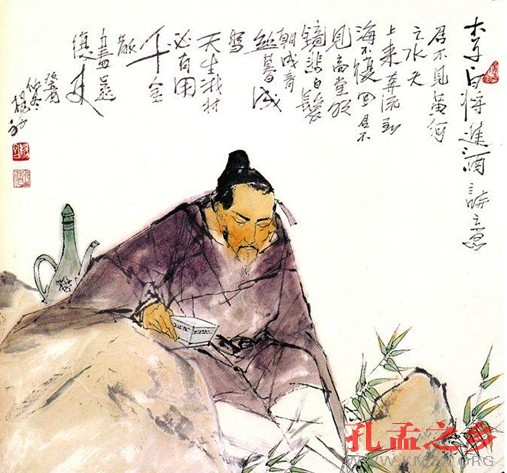 李白将進酒诗意
君不見黄河
之水天
上来奔流到
海不復回君不
見高堂明
鏡悲白髮
朝成青
丝暮成
雪
天生我材
必有用
千金
散
盡還
復来
仲冬
孔孟之乡